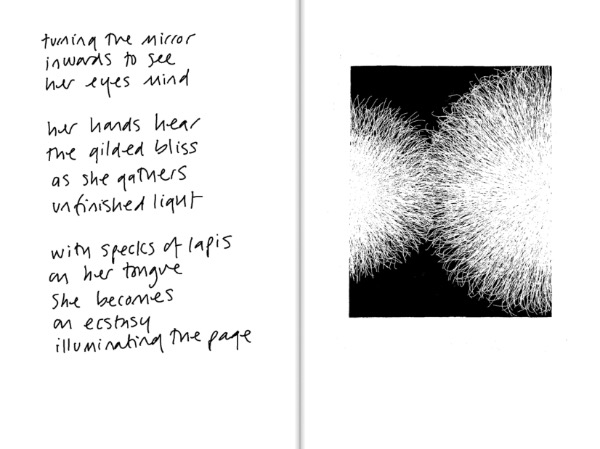 turning the mirror
inwards to see
her eyes mind
her hands hear
the gilded bliss
as she gathers
unfinished light
with specks of lapis
on her tongue
she becomes
an ecstasy
illuminating the page